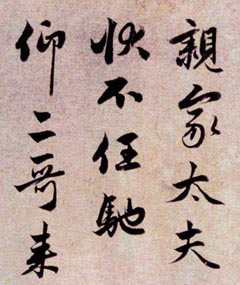 親家太夫
快不任馳
仰二哥来